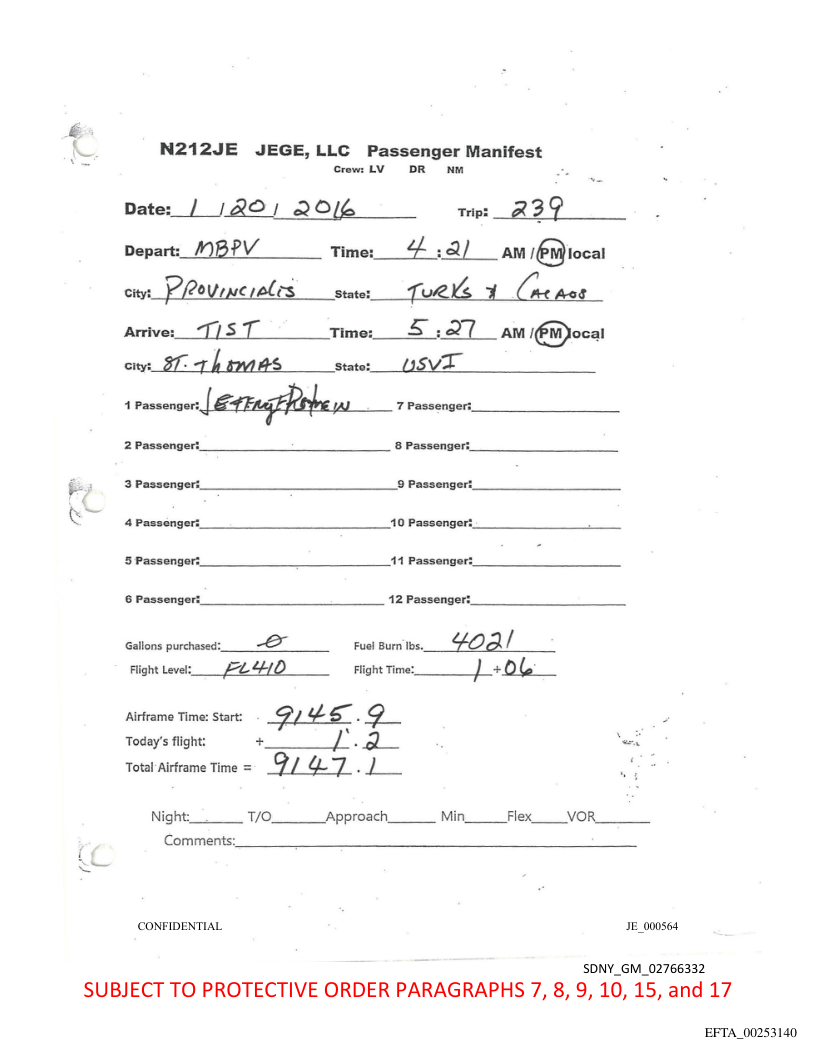 N212JE JEGE, LLC Passenger Manifest
Crew: LV DR NM
Date: 1 / 20 / 2016 Trip: 239
Depart: MBPV Time: 4 : 21 AM / PM local
City: PROVINCIALIS State: TURKS & CACAOS
Arrive: TIST Time: 5 : 27 AM / PM local
City: ST. THOMAS State: USVI
1 Passenger: JEFFREY EPSTEIN 7 Passenger:
2 Passenger: 8 Passenger:
3 Passenger: 9 Passenger:
4 Passenger: 10 Passenger:
5 Passenger: 11 Passenger:
6 Passenger: 12 Passenger:
Gallons purchased: 0 Fuel Burn lbs. 4021
Flight Level: FL410 Flight Time: 1 + 06
Airframe Time: Start: 9145 . 9
Today's flight: + 1 . 2
Total Airframe Time = 9147 . 1
Night: T/O Approach Min Flex VOR
Comments:
CONFIDENTIAL JE_000564
SDNY_GM_02766332
SUBJECT TO PROTECTIVE ORDER PARAGRAPHS 7, 8, 9, 10, 15, and 17
EFTA_00253140